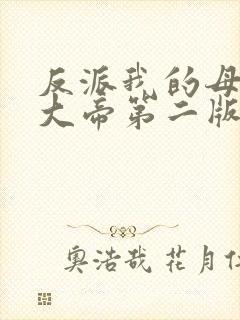 反派我的母
大帝第二版
奥浩哉 花月仁